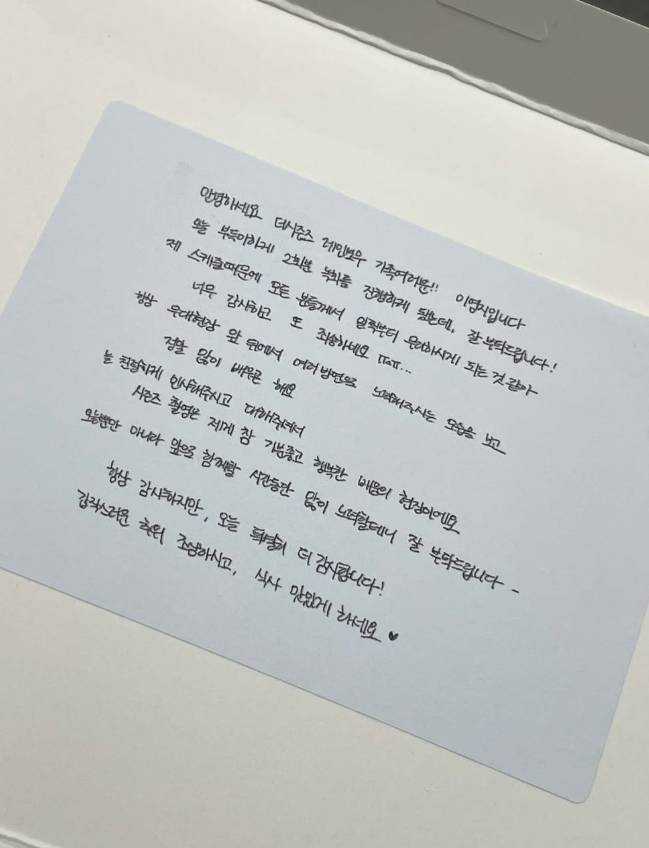 안녕하세요 더시즌즈 레인보우 가족여러분!! 이영지입니다
오늘 부득이하게 2회분 녹화를 진행하게 됐는데, 잘 부탁드립니다!
제 스케줄때문에 모든 분들께서 일찍부터 무리하시게 되는 것 같아
너무 감사하고 또 죄송하네요 ㅠㅠ...
항상 무대현장 앞 뒤에서 여러 방면으로 노력해주시는 모습을 보고
정말 많이 배우곤 해요
늘 친절하게 인사해주시고 대해주셔서
시즌즈 촬영은 저에게 참 기분좋고 행복한 배움의 현장이에요
오늘뿐만 아니라 앞으로 함께할 시간동안 많이 노력할테니 잘 부탁드립니다 -
항상 감사하지만, 오늘 특별히 더 감사합니다!
갑작스러운 추위 조심하시고, 식사 맛있게 하세요 ♥